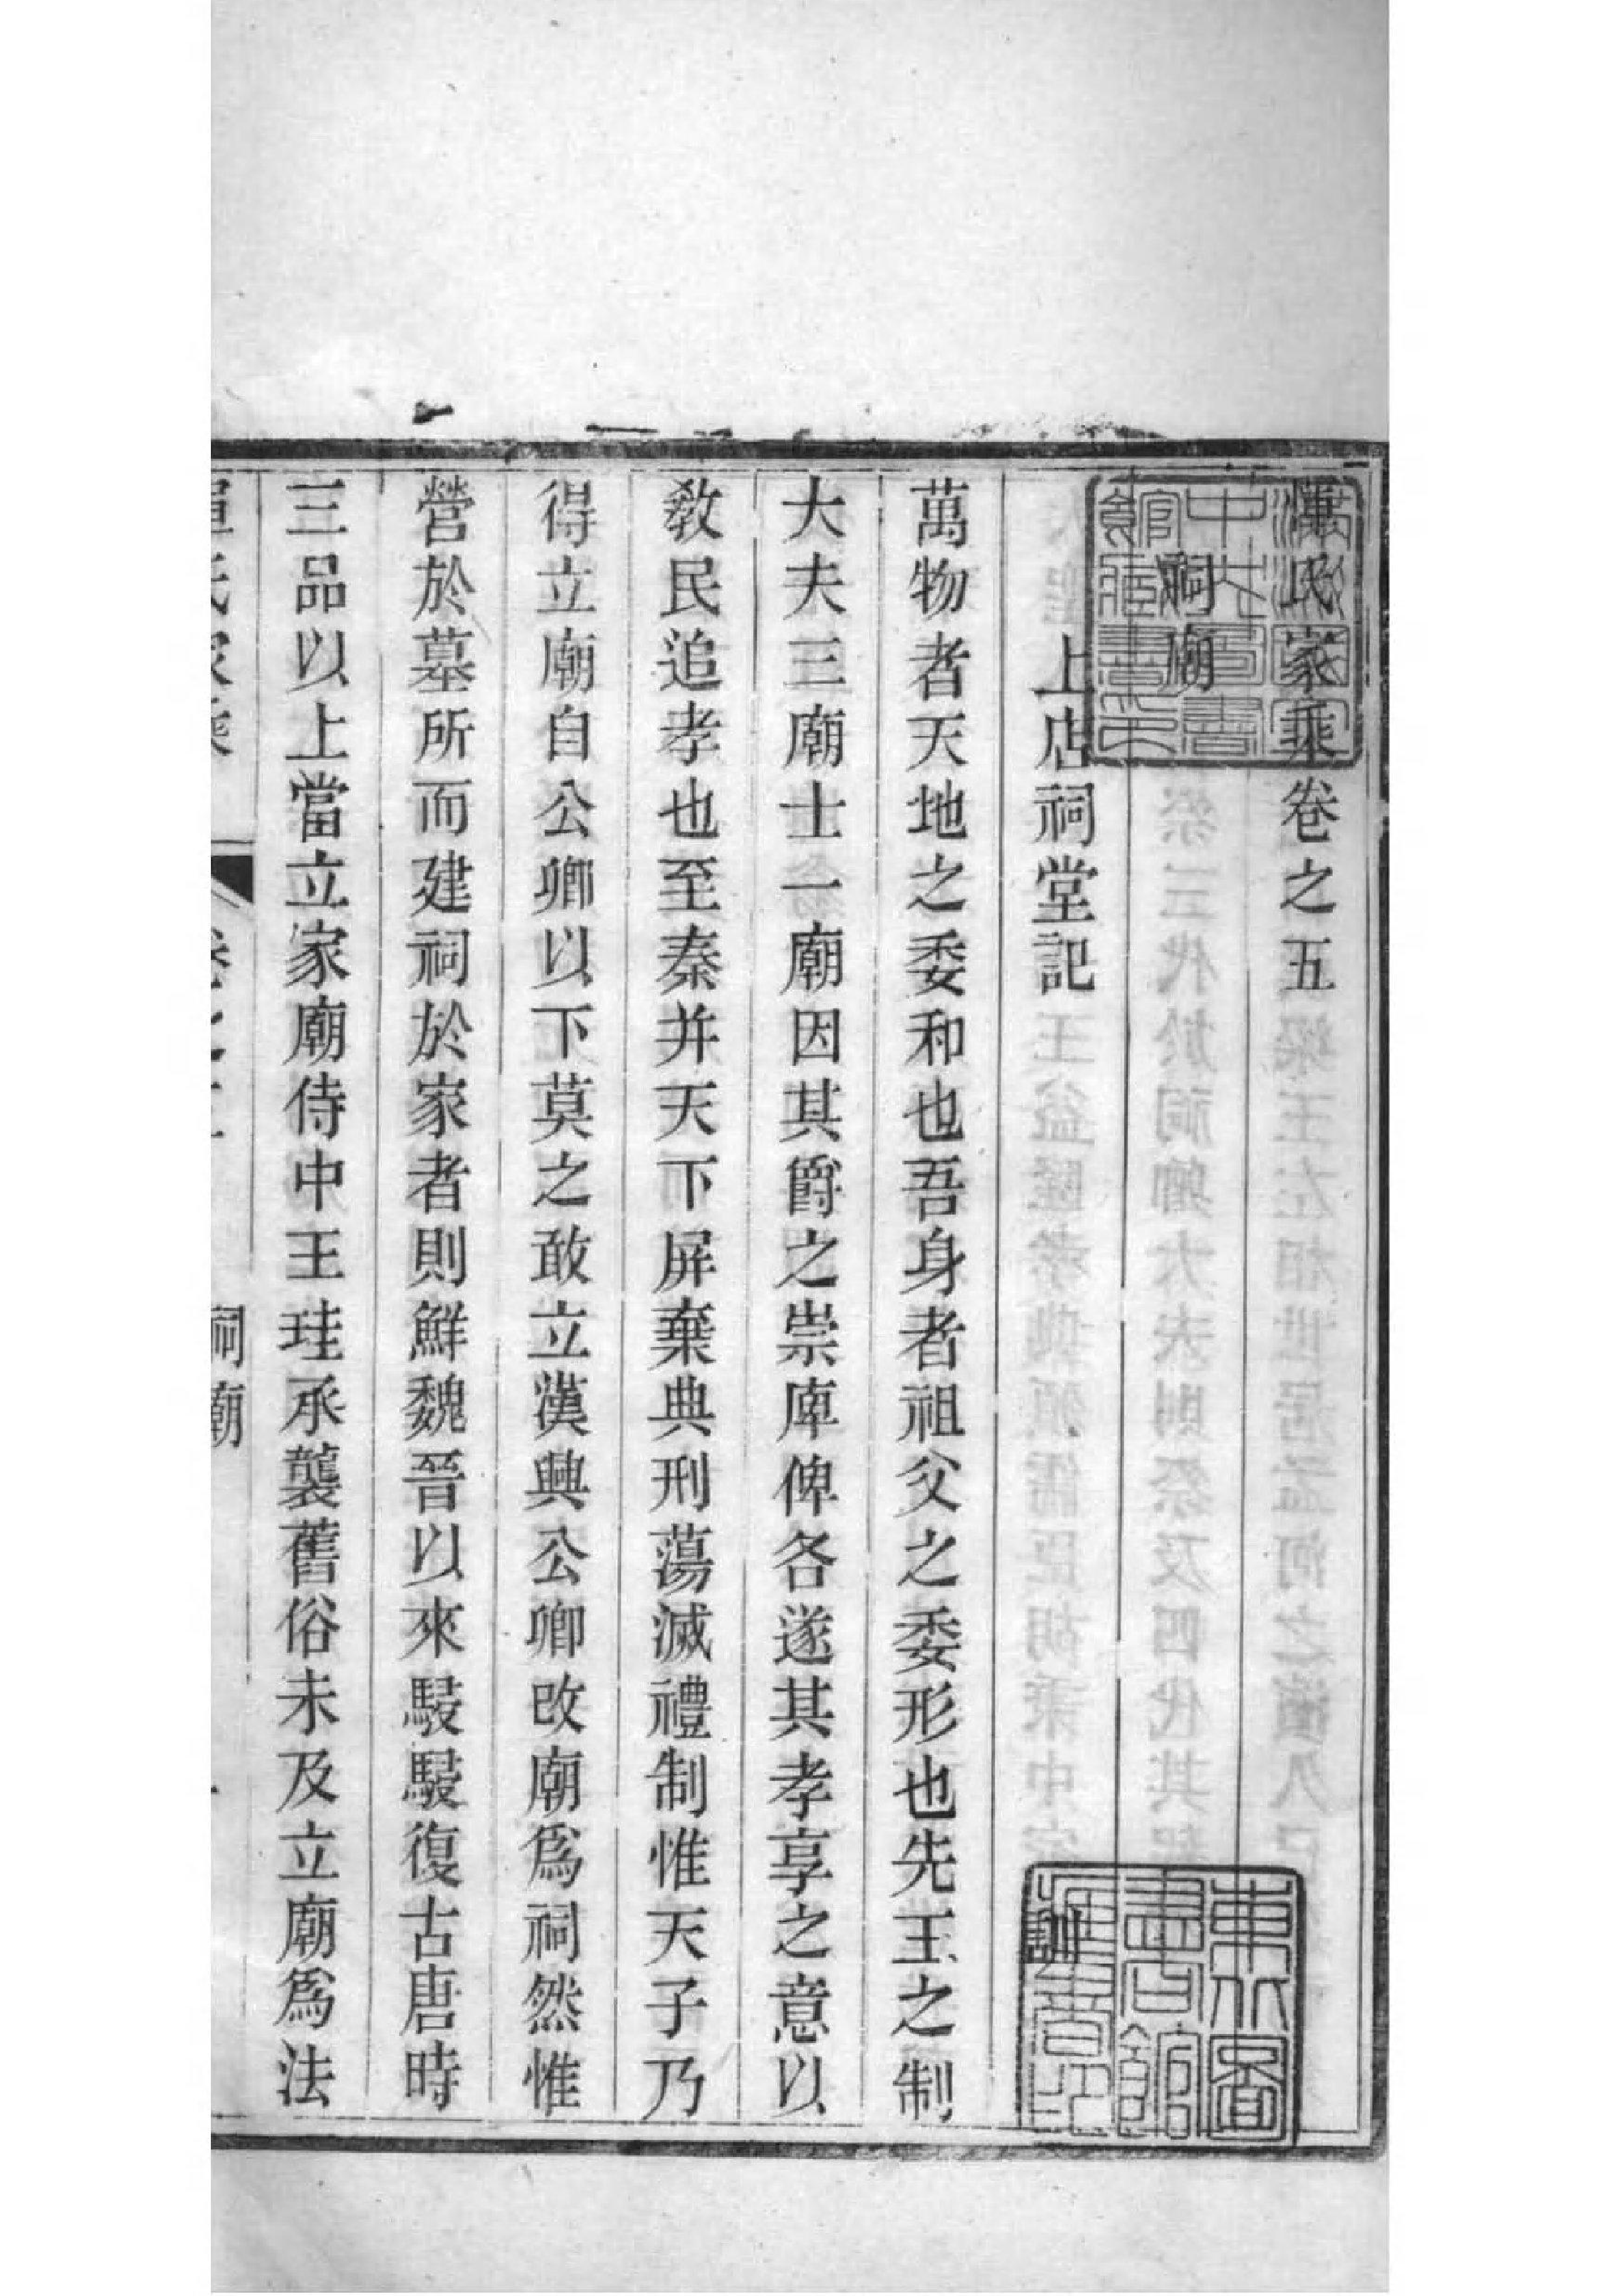 惲氏家乘卷之五
祠廟
上店祠堂記
訓
萬物者天地之委和也吾身者祖父之委形也先王之制
大夫三廟士一廟因其爵之崇庳俾各遂其孝享之意以
敎民追孝也至秦并天下屏棄典刑蕩滅禮制惟天子乃
得立廟自公卿以下莫之敢立漢興公卿改廟爲祠然惟
營於墓所而建祠於家者則鮮魏晉以來駸駸復古唐時
三品以上當立家廟侍中王珪承襲舊俗未及立廟爲法
祠廟
東北圖書館藏書印